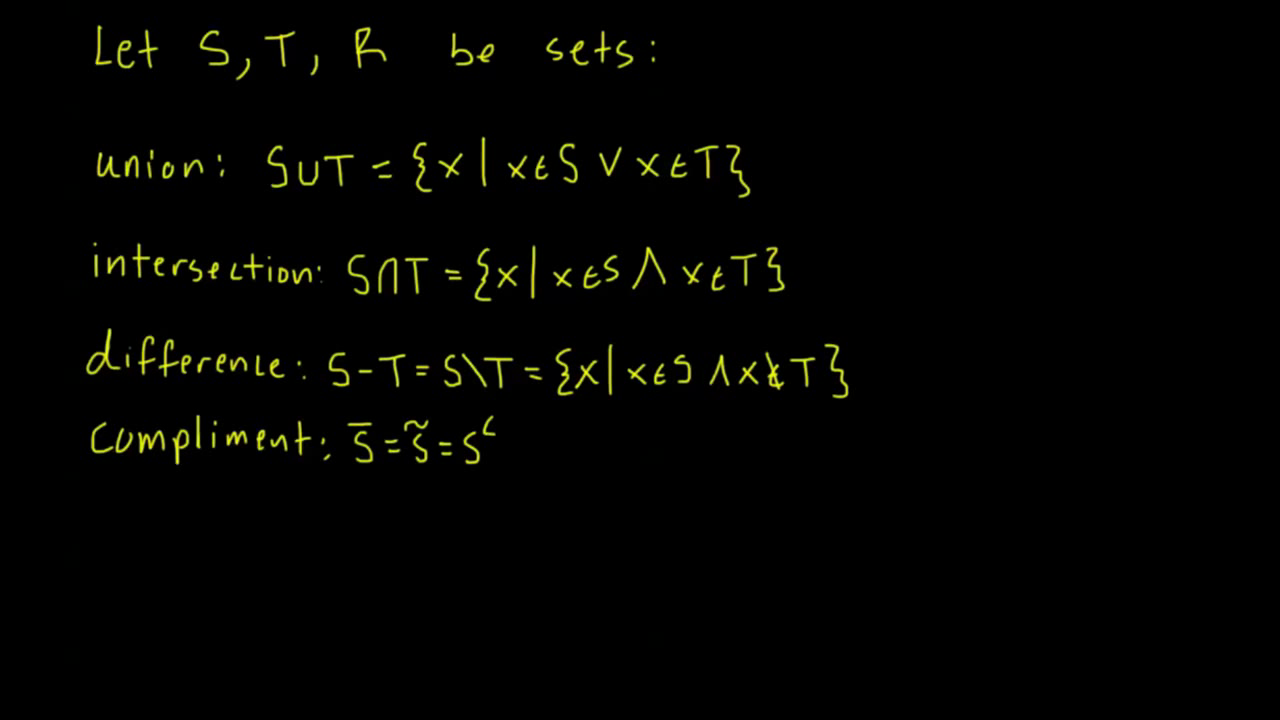 Let S, T, R be sets:
union: S∪T = {x | x∈S ∨ x∈T}
intersection: S∩T = {x | x∈S ∧ x∈T}
difference: S-T = S\T = {x | x∈S ∧ x∉T}
compliment: S̅ = S̃ = Sᶜ